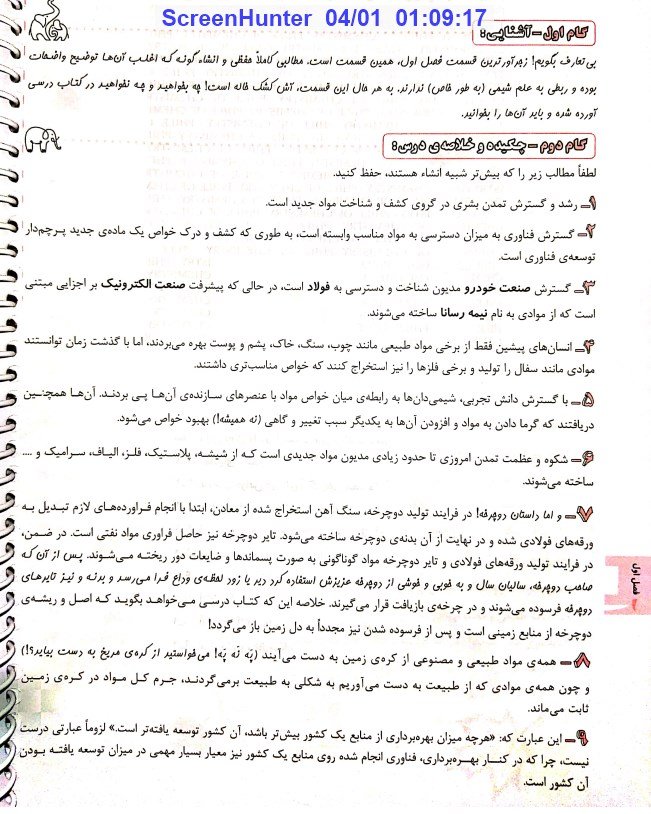 ScreenHunter 04/01 01:09:17
گام اول – آشنایی:
بی‌تعارف بگویم! زهرآورترین قسمت فصل اول، همین قسمت است. مطالبی کاملاً حفظی و انشاء گونه که اغلب آن‌ها توضیح واضحات
بوده و ربطی به علم شیمی (به طور خاص) ندارند. به هر حال این قسمت، آش کشک خاله است! چه بخواهید و چه نخواهید در کتاب درسی
آورده شده و باید آن‌ها را بخوانید.
گام دوم – چکیده و خلاصه‌ی درس:
لطفاً مطالب زیر را که بیش‌تر شبیه انشاء هستند، حفظ کنید.
۱– رشد و گسترش تمدن بشری در گروی کشف و شناخت مواد جدید است.
۲– گسترش فناوری به میزان دسترسی به مواد مناسب وابسته است، به طوری که کشف و درک خواص یک ماده‌ی جدید پرچم‌دار
توسعه‌ی فناوری است.
۳– گسترش صنعت خودرو مدیون شناخت و دسترسی به فولاد است، در حالی که پیشرفت صنعت الکترونیک بر اجزایی مبتنی
است که از موادی به نام نیمه رسانا ساخته می‌شوند.
۴– انسان‌های پیشین فقط از برخی مواد طبیعی مانند چوب، سنگ، خاک، پشم و پوست بهره می‌بردند، اما با گذشت زمان توانستند
موادی مانند سفال را تولید و برخی فلزها را نیز استخراج کنند که خواص مناسب‌تری داشتند.
۵– با گسترش دانش تجربی، شیمی‌دان‌ها به رابطه‌ی میان خواص مواد با عنصرهای سازنده‌ی آن‌ها پی بردند. آن‌ها همچنین
دریافتند که گرما دادن به مواد و افزودن آن‌ها به یکدیگر سبب تغییر و گاهی (نه همیشه!) بهبود خواص می‌شود.
۶– شکوه و عظمت تمدن امروزی تا حدود زیادی مدیون مواد جدیدی است که از شیشه، پلاستیک، فلز، الیاف، سرامیک و ....
ساخته می‌شوند.
۷– و اما داستان دوچرخه! در فرایند تولید دوچرخه، سنگ آهن استخراج شده از معادن، ابتدا با انجام فراورده‌های لازم تبدیل به
ورقه‌های فولادی شده و در نهایت از آن بدنه‌ی دوچرخه ساخته می‌شود. تایر دوچرخه نیز حاصل فراوری مواد نفتی است. در ضمن،
در فرایند تولید ورقه‌های فولادی و تایر دوچرخه مواد گوناگونی به صورت پسماندها و ضایعات دور ریخته می‌شوند. پس از آن که
صاحب دوچرخه، سالیان سال و به خوبی و خوشی از دوچرخه عزیزش استفاده کرد دیر یا زود لحظه‌ی وداع فرا می‌رسد و بدنه و نیز تایرهای
دوچرخه فرسوده می‌شوند و در چرخه‌ی بازیافت قرار می‌گیرند. خلاصه این که کتاب درسی می‌خواهد بگوید که اصل و ریشه‌ی
دوچرخه از منابع زمینی است و پس از فرسوده شدن نیز مجدداً به دل زمین باز می‌گردد!
۸– همه‌ی مواد طبیعی و مصنوعی از کره‌ی زمین به دست می‌آیند (پَه نَه پَه! می‌خواستید از کره‌ی مریخ به دست بیاید؟!)
و چون همه‌ی موادی که از طبیعت به دست می‌آوریم به شکلی به طبیعت برمی‌گردند، جرم کل مواد در کره‌ی زمین
ثابت می‌ماند.
۹– این عبارت که: «هرچه میزان بهره‌برداری از منابع یک کشور بیش‌تر باشد، آن کشور توسعه یافته‌تر است.» لزوماً عبارتی درست
نیست، چرا که در کنار بهره‌برداری، فناوری انجام شده روی منابع یک کشور نیز معیار بسیار مهمی در میزان توسعه یافته بودن
آن کشور است.
فصل اول